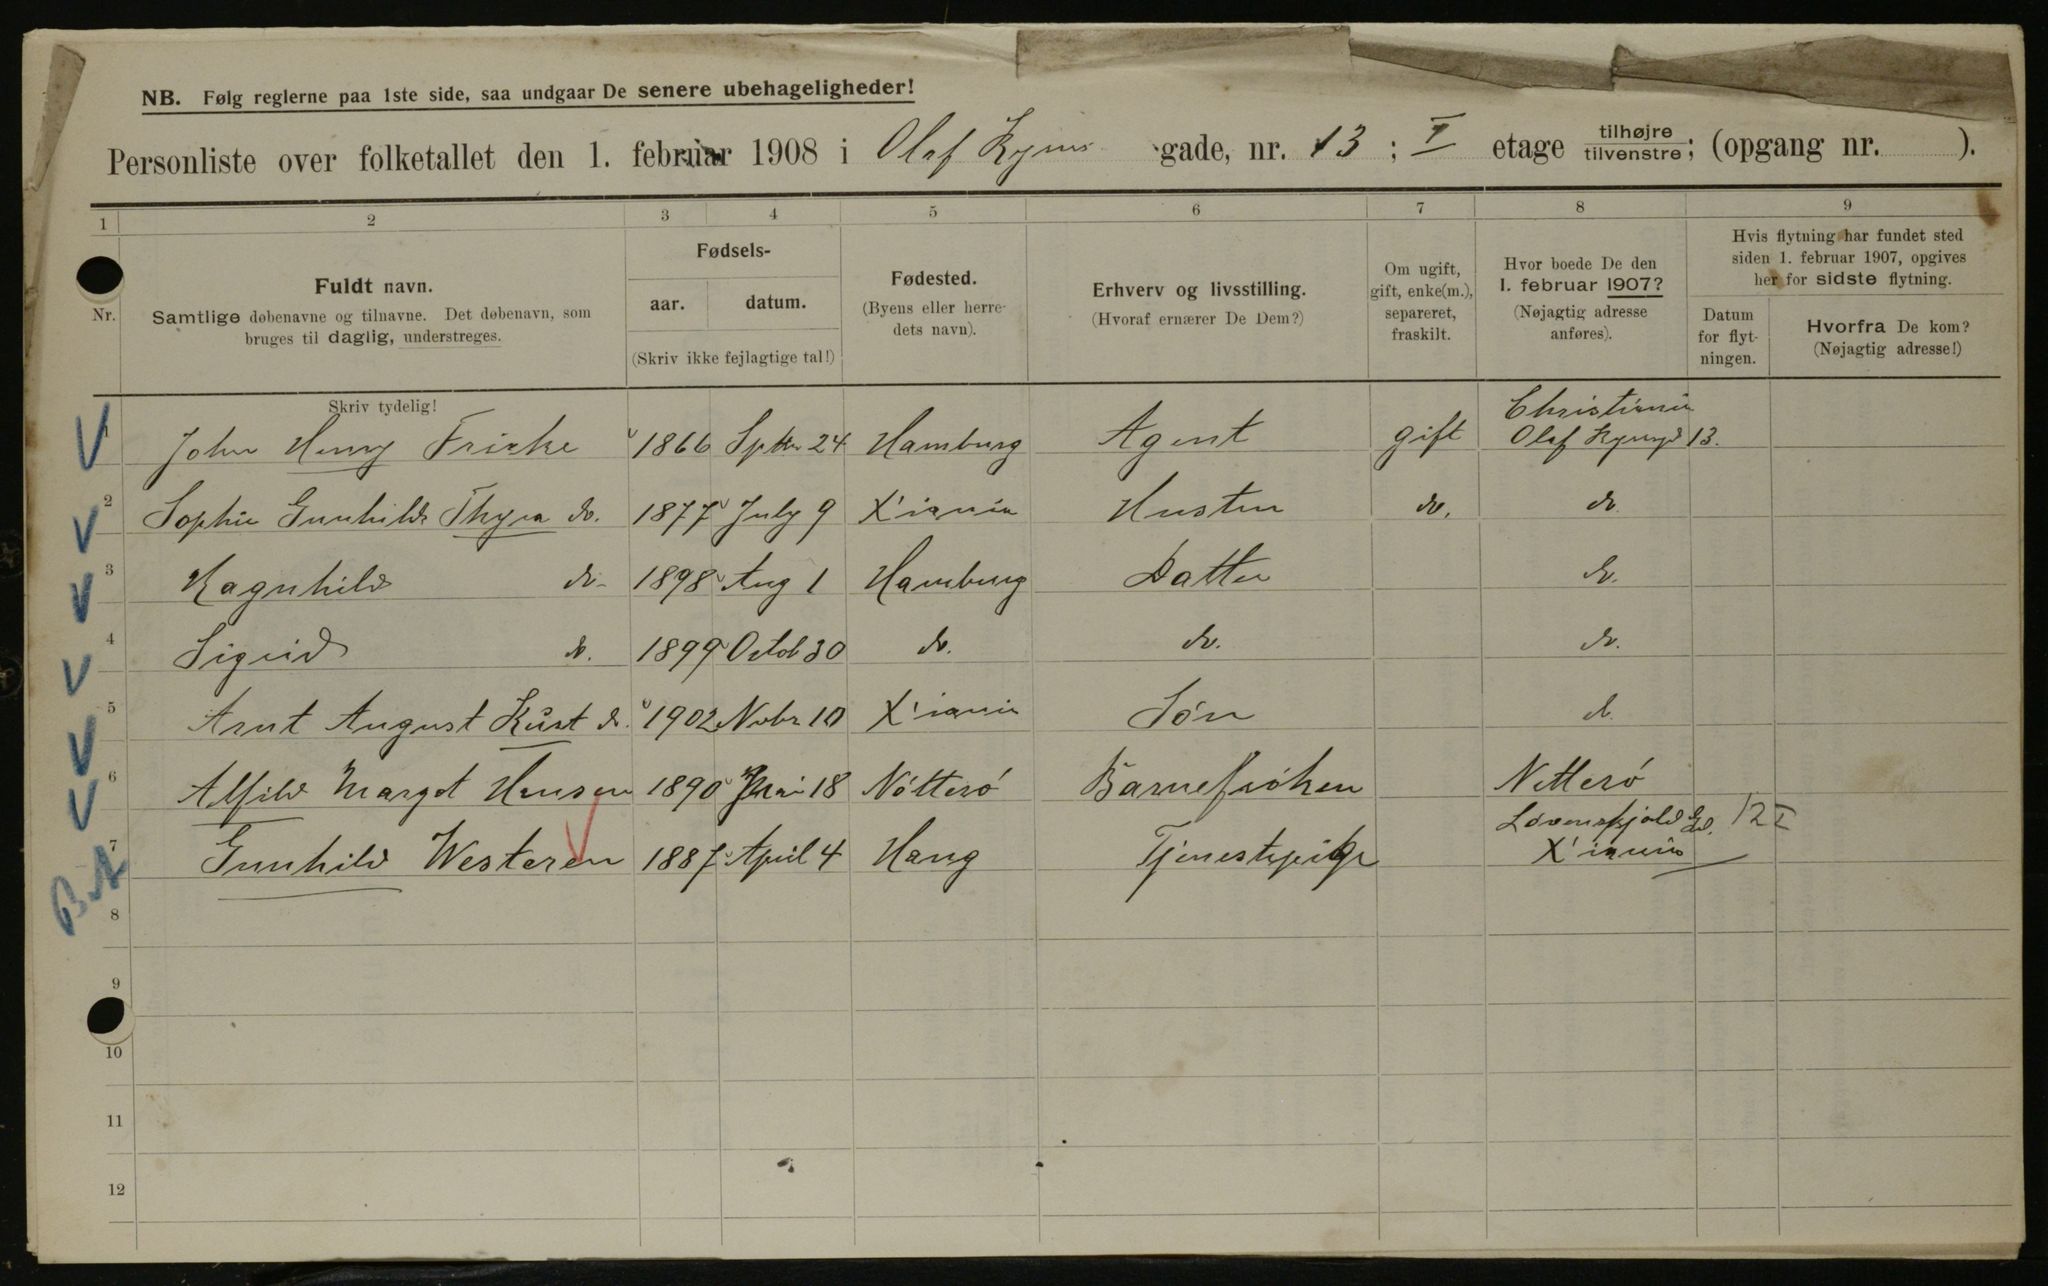 NB. Følg reglerne paa 1ste side, saa undgaar De senere ubehageligheder!
Personliste over folketallet den 1. februar 1908 i Olaf Ryes gade, nr. 13; I etage tilhøjre tilvenstre; (opgang nr. ).
1 2 3 4 5 6 7 8 9
Nr.
Fuldt navn.
Samtlige døbenavne og tilnavne. Det døbenavn, som
bruges til daglig, understreges.
Skriv tydelig!
Fødsels-
aar. datum.
(Skriv ikke fejlagtige tal!)
Fødested.
(Byens eller herre-
dets navn).
Erhverv og livsstilling.
(Hvoraf ernærer De Dem?)
Om ugift,
gift, enke(m.),
separeret,
fraskilt.
Hvor boede De den
1. februar 1907?
(Nøjagtig adresse
anføres).
Hvis flytning har fundet sted
siden 1. februar 1907, opgives
her for sidste flytning.
Datum
for flyt-
ningen.
Hvorfra De kom?
(Nøjagtig adresse!)
Christiania
1 John Henry Fricke 1866 Septbr 24 Hamburg Agent gift Olaf Ryesgd 13.
2 Sophie Gunhilde Thyra do. 1877 July 9 X'iania Hustru do. do.
3 Ragnhild do. 1898 Aug 1 Hamburg Datter do.
4 Sigrid do. 1899 Octob 30 do. do. do.
5 Arnt August Kurt do. 1902 Novbr 10 X'iania Søn do.
6 Alfild Margot Hansen 1890 Mai 18 Nötterö Barnefröken Nötterö
Lövenskjold Gd. 12 I
7 Gunhild Westeren 1887 April 4 Haug Tjenestepige X'iania
8
9
10
11
12